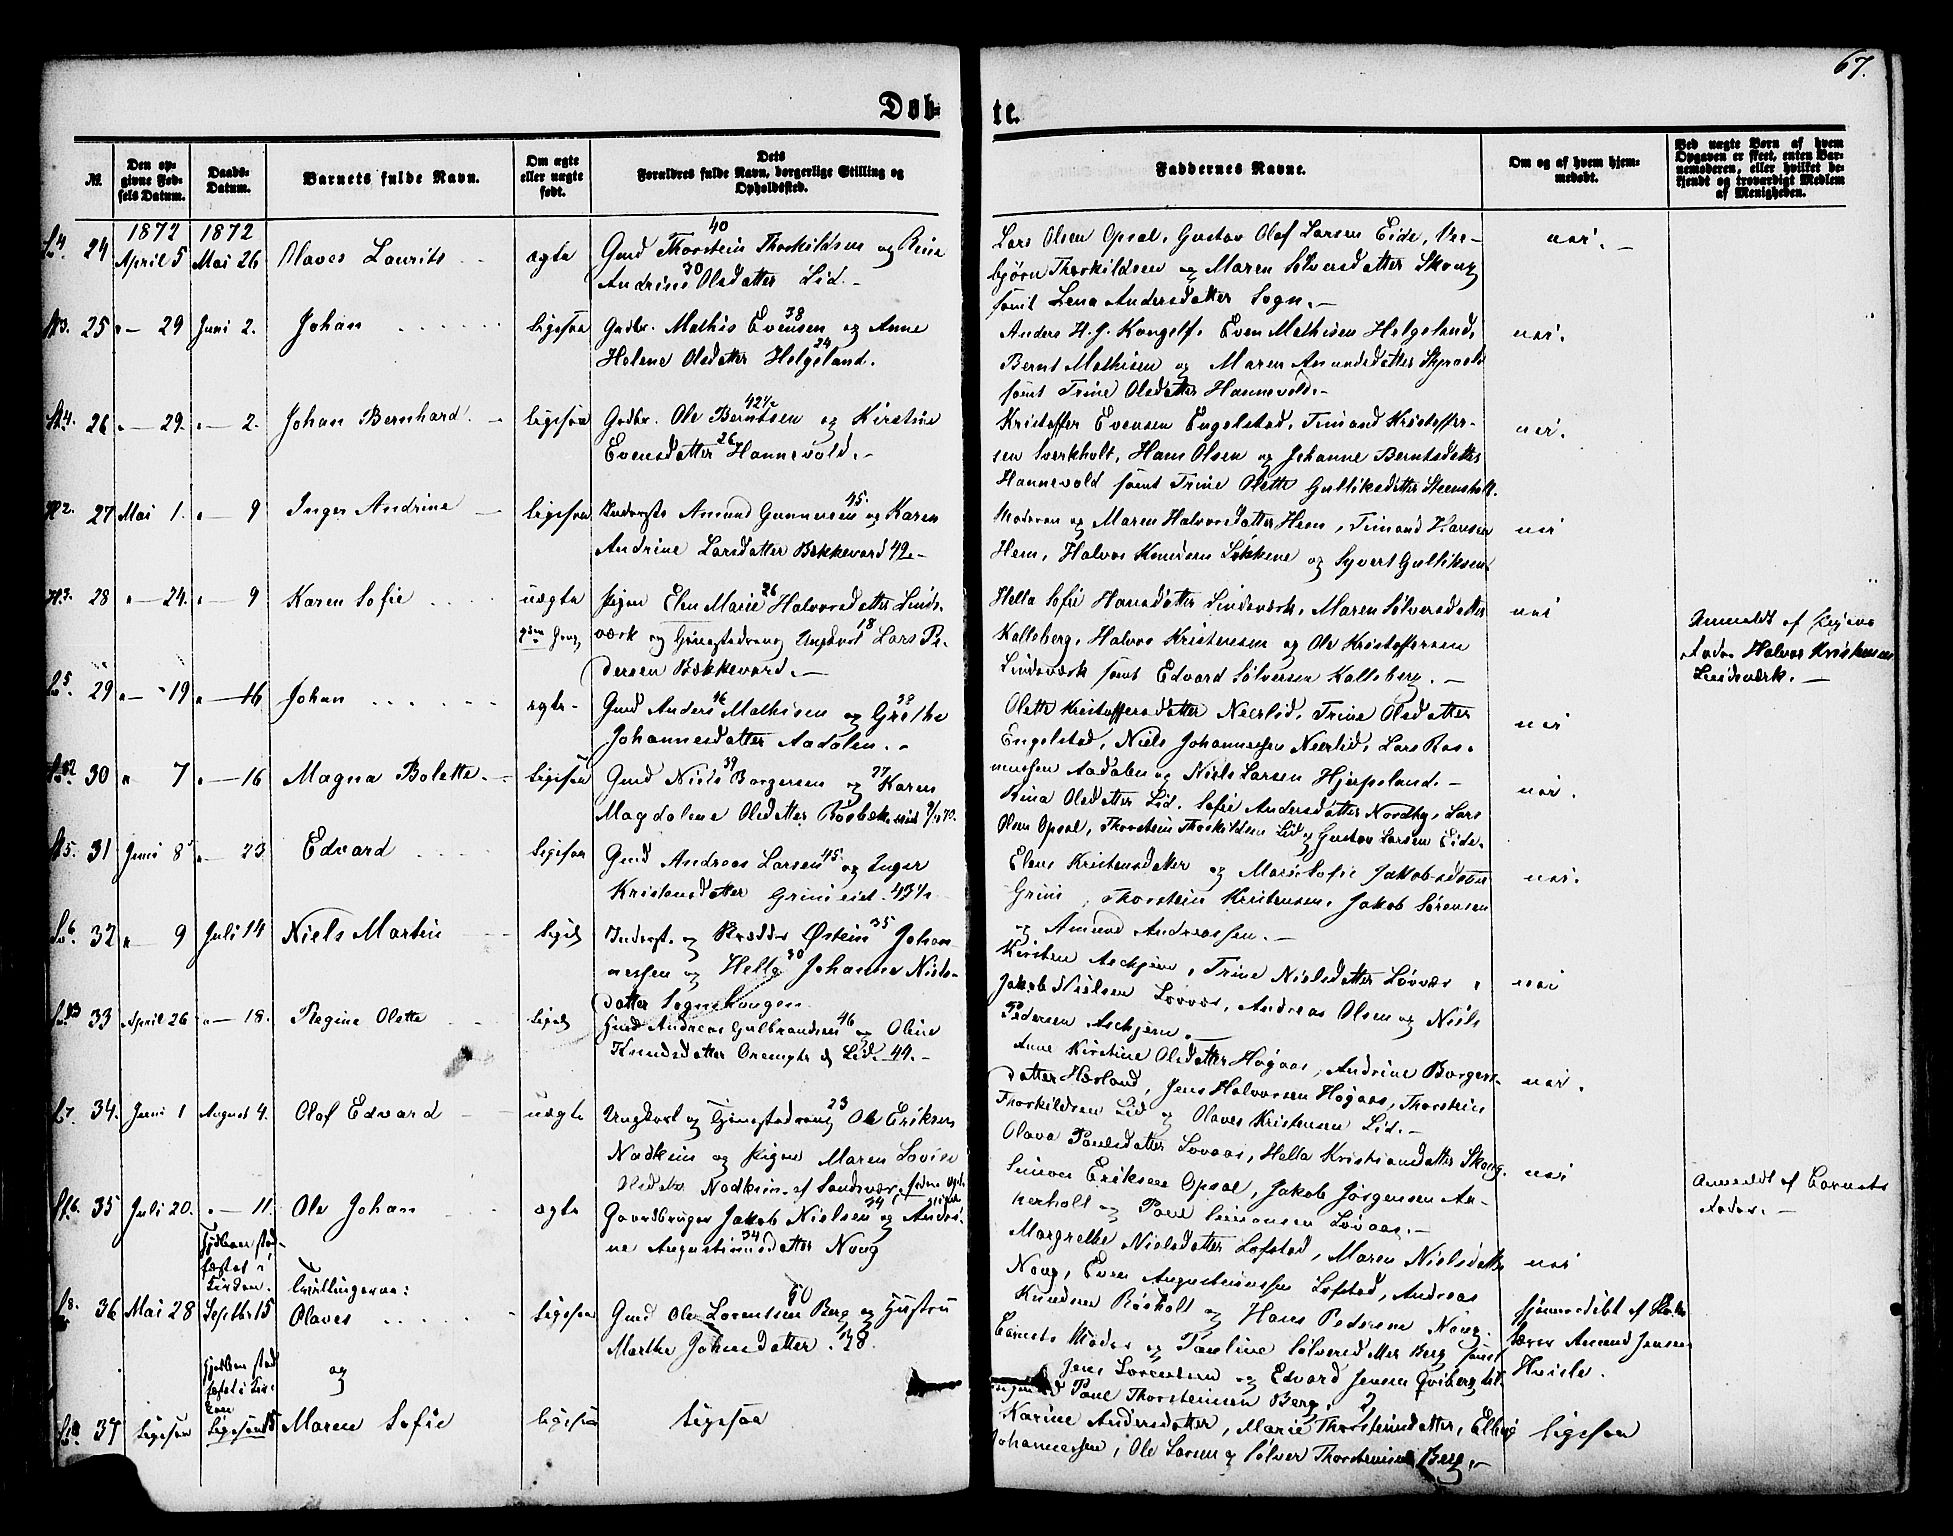 67.
Døbte.
№.
Den opgivne Fødsels Datum.
Daabs-Datum.
Barnets fulde Navn.
Om ægte eller uægte født.
Dets Forældres fulde Navn, borgerlige Stilling og Opholdssted.
Faddernes Navne.
Om og af hvem hjemmedøbt.
Ved uægte Børn af hvem Opgaven er skeet, enten Barnemoderen, eller hvilket bekjendt og troværdigt Medlem af Menigheden.
1872 1872
24 April 5 Mai 26 Olaves Laurits ægte
Gmd Thorstein Thorkildsen 40 og Rina
Andrine 30 Olsdatter Lid.
Lars Olsen Opsal, Gustav Olaf Larsen Eide, Ves-
bjørn Thorkildsen og Maren Sølversdatter Skoug
samt Lena Andersdatter Sogn.
nei.
25 " 29 Juni 2. Johan ligesaa
Gadbr. Mathis Evensen 38 og Anne
Helene Olsdatter Helgeland. 24
Anders H. J. Kongelf. Even Mathisen Helgeland,
Bernt Mathisen og Maren Amundsdatter
samt Trine Olsdatter Hannevold.
nei.
26 " 29 " 2. Johan Bernhard. ligesaa
Gadbr. Ole Berntsen 42½ og Kirstine
Evensdatter 26 Hannevold.
Kristoffer Evensen Engelstad, Timand Kristoffer-
sen Sverkholt, Hans Olsen og Johanne Berntsdatter
Hannevold samt Trine Olette Gulliksdatter Steensholt.
nei.
27 Mai 1. " 9 Inger Andrine ligesaa
Inderste Amund Gunnersen 45. og Karen
Andrine Larsdatter Bekkevard 42
Moderen og Maren Halvorsdatter Hem, Timand Hansen
Hem, Halvor Knudsen Løkkene og Syvert Gulliksen.
nei
28 " 24. " 9 Karen Sofie uægte
Pigen Elen Marie 26 Halvorsdatter Linds-
værk og Gjengstadreng Ungkarl 18 Lars Pe-
dersen Bekkevard.
Hella Sofie Hansdatter Lindsværk, Maren Sølversdatter
Kallsberg, Halvor Kristensen og Ole Kristoffersen
Lindsværk samt Edvard Sølversen Kallsberg.
nei
Anmeldt af Pigens
Fader Halvor Kristensen
Lindsværk.
29 " 19 " 16 Johan ægte
Gmd Anders 46 Mathisen og Grethe 39
Johannesdatter Aadalen.
Olette Kristoffersdatter Neerlid, Trine Olsdatter
Engelstad, Niels Johannessen Neerlid, Lars Ras-
mussen Aadalen og Niels Larsen Hjerpeland.
nei
30 " 7 " 16 Magna Bolette. ligesaa
Gmd Niels 39 Borgersen og 37 Karen
Magdalene Olsdatter
Rina Olsdatter Lid. Sofie Andersdatter Nordby, Lars
Olsen Opsal, Thorstein Thorkildsen Lid og Gustav Larsen Eide.
nei.
31 Juni 8 " 23 Edvard ligesaa
Gmd Andreas Larsen 45. og Inger
Kristensdatter Grini eid. 43½
Elene Kristensdatter og Marie Sofie Jakobsdatter
Grini, Thorstein Kristensen, Jakob Sørensen
og Amund Andreassen.
nei.
32 " 9 Juli 14 Niels Martin
Inderst. og Skrædder Østein 35 Johan-
nessen og Helle 30 Johanne Niels-
datter Sogneskougen
Kirsten Askjern, Trine Nielsdatter Løvvær,
Jakob Nielsen Løvaas, Andreas Olsen og Niels
Pedersen Askjern.
nei
33 April 26 " 18. Regine Olette
Gmd Andreas Gulbrandsen 46 og Oline
Knudsdatter Lid. 44.
Anne Kirstine Olsdatter Høgaas, Andrine Borgers-
datter Hæsland, Jens Halvorsen Høgaas, Thorstein
Thorkildsen Lid og Olaves Kristensen Lid.
nei.
34. Juni 1 August 4. Olof Edvard uægte
Ungkarl og Gjengstadreng 23 Ole Eriksen
Nødkim og Pigen Maren Lovise
Olsdatter Nødkim
Olava Paulsdatter Lovaas, Hella Kristiansdatter Skoug.
Simon Eriksen Opsal, Jakob Jørgensen An-
nerholt og Paul Simonsen Lovaas.
nei
Anmeldt af Barnets
Fader.
35 Juli 20. " 11. Ole Johan ægte
Gaardbruger Jakob Nielsen 34 og Andri-
ne Augustinusdatter 34 Noug
Margrethe Nielsdatter Løfstad, Maren Nielsdatter
Noug, Even Augustinussen Løfstad, Andreas
Knudsen Røsholt og Hans Pedersen Noug.
nei
Hjdbaen stad-
fæstet i
Kirken. Tvillingerne:
36 Mai 28 Septbr 15 Olaves ligesaa
Gmd Ole Lorentsen 50 Berg og Hustru
Marthe Johnsdatter 48.
Barnets Moder og Pauline Sølversdatter Berg samt
Jens Lorentsen og Edvard Jensen Qviberg
Paul Thorsteinsen Berg.
Hjemmedøbt af Skole-
lærer Amund Jensen
Hvisle.
og
37 Ligesaa Ligesaa 15 Maren Sofie ligesaa
Ligesaa
Karine Andersdatter, Marie Thorsteinsdatter, Elling
Johannessen, Ole Larsen og Sølver Thorsteinsen Berg.
ligesaa